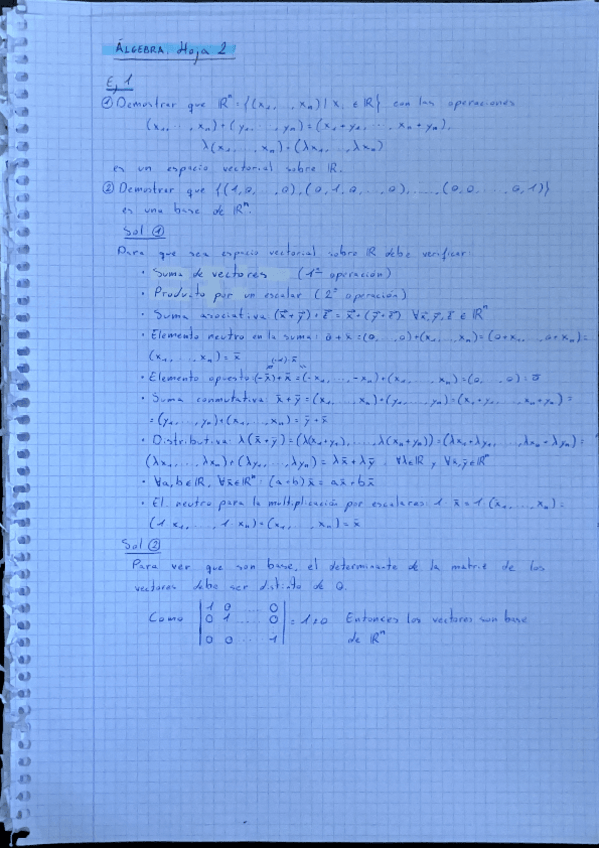 ÁLGEBRA. Hoja 2
E, 1
① Demostrar que ℝⁿ={(x₁, ..., xₙ) | xᵢ ∈ ℝ} con las operaciones
(x₁, ..., xₙ)+(y₁, ..., yₙ)=(x₁+y₁, ..., xₙ+yₙ),
λ(x₁, ..., xₙ)=(λx₁, ..., λxₙ)
es un espacio vectorial sobre ℝ.
② Demostrar que {(1,0, ..., 0),(0,1,0, ..., 0), ..., (0,0, ..., 0,1)}
es una base de ℝⁿ.
Sol ①
Para que sea espacio vectorial sobre ℝ debe verificar:
· Suma de vectores (1ª operación)
· Producto por un escalar (2ª operación)
· Suma asociativa: (x̄+ȳ)+z̄ = x̄+(ȳ+z̄) ∀x̄,ȳ,z̄ ∈ ℝⁿ
· Elemento neutro en la suma: ō+x̄=(0, ..., 0)+(x₁, ..., xₙ)=(0+x₁, ..., 0+xₙ)=
(x₁, ..., xₙ)=x̄
(-1)·x̄
· Elemento opuesto (-x̄)+x̄=(-x₁, ..., -xₙ)+(x₁, ..., xₙ)=(0, ..., 0)=ō
· Suma conmutativa x̄+ȳ=(x₁, ..., xₙ)+(y₁, ..., yₙ)=(x₁+y₁, ..., xₙ+yₙ)=
=(y₁, ..., yₙ)+(x₁, ..., xₙ)=ȳ+x̄
· Distributiva: λ(x̄+ȳ)=(λ(x₁+y₁), ..., λ(xₙ+yₙ))=(λx₁+λy₁, ..., λxₙ+λyₙ)=
(λx₁, ..., λxₙ)+(λy₁, ..., λyₙ)=λx̄+λȳ, ∀λ∈ℝ y ∀x̄,ȳ∈ℝⁿ
· ∀a,b∈ℝ, ∀x̄∈ℝⁿ: (a+b)x̄=ax̄+bx̄
· El. neutro para la multiplicación por escalares: 1·x̄=1·(x₁, ..., xₙ)=
(1·x₁, ..., 1·xₙ)=(x₁, ..., xₙ)=x̄
Sol ②
Para ver que son base, el determinante de la matriz de los
vectores debe ser distinto de 0.
Como |1 0 ... 0|
|0 1 ... 0| = 1≠0 Entonces los vectores son base
|0 0 ... 1| de ℝⁿ